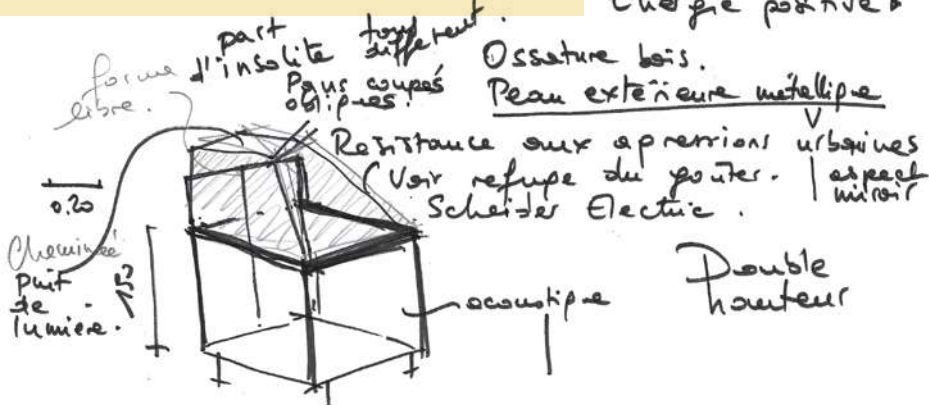 Energie positive
part
d'insolite
tout
différent.
forme
libre.
Pans coupés
obliques.
Ossature bois.
Peau extérieure métallique
Resistance aux agressions urbaines
Voir refuge du goûter.
aspect
miroir
Scheider Electric.
0,20
Cheminée
Puit
de
lumière.
acoustique
Double
hauteur